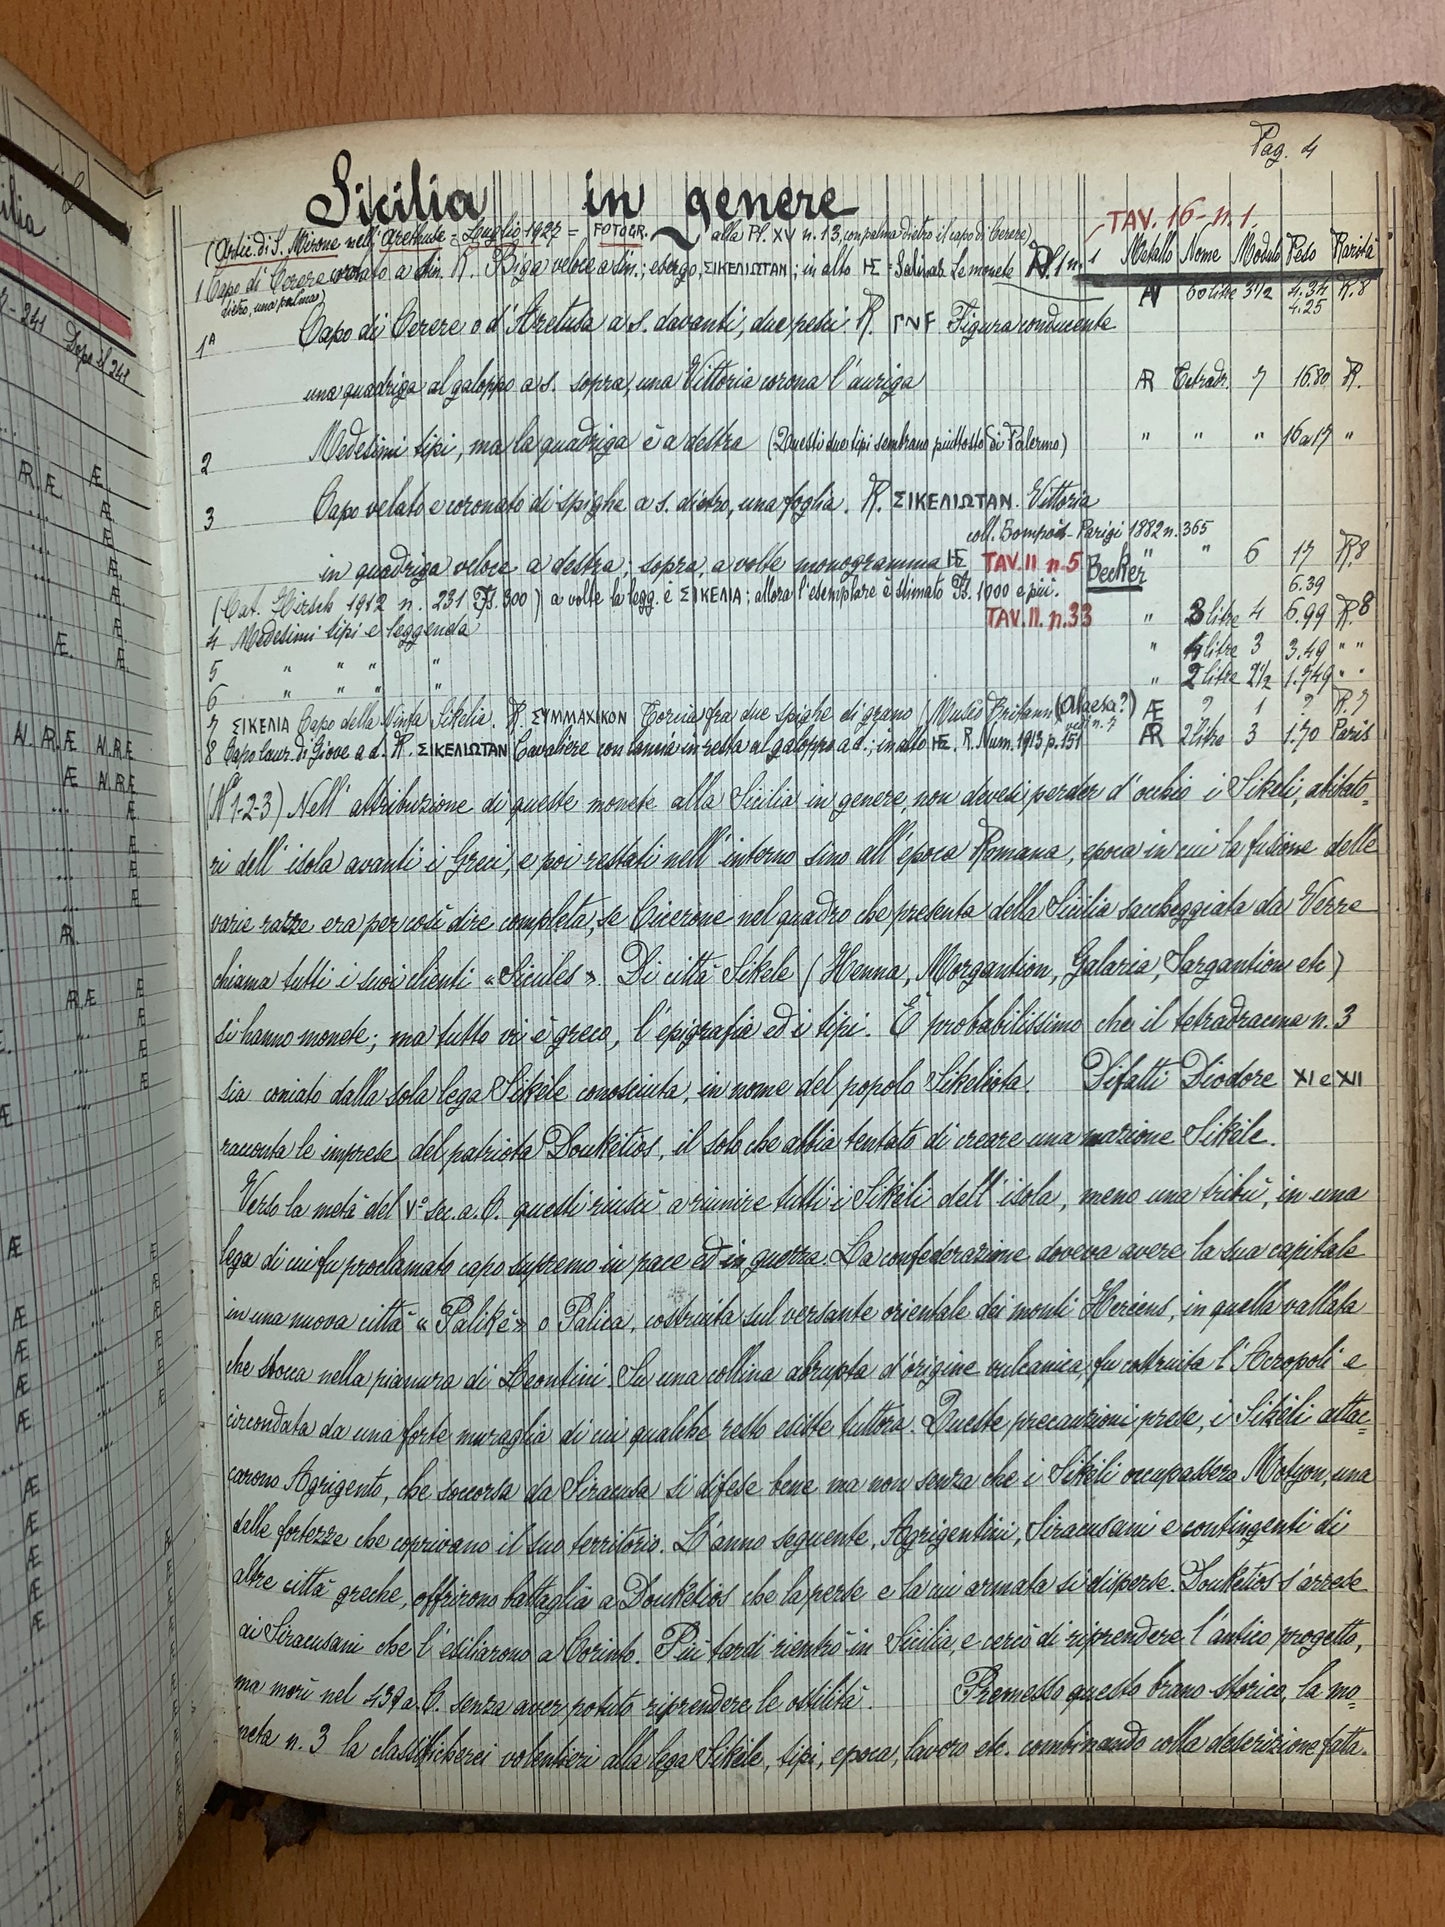 Pag. 4
Sicilia in genere
TAV. 16 - n. 1.
(Artic. di S. Mirone nell' Arethuse = Luglio 1927 = FOTOGR. alla Pl. XV n. 13, con palma dietro il capo di Cerere)
Metallo Nome Modulo Peso Rarità
1 Capo di Cerere coronato a sin. R. Biga veloce a sin.; esergo, ΣΙΚΕΛΙΩΤΑΝ; in alto Salinas Le monete Pl. 1 n. 1
dietro, una palma
N 60 litre 3½ 4.34 R.8
4.25
1A Capo di Cerere o d'Aretusa a s. davanti, due pesci R. Figura conducente
una quadriga al galoppo a s. sopra, una Vittoria corona l'auriga AR Tetradr. 7 16.80 R.
2 Medesimi tipi, ma la quadriga è a destra (Questi due tipi sembrano piuttosto di Palermo) " " " 16 a 17 "
3 Capo velato e coronato di spighe a s. dietro, una foglia. R. ΣΙΚΕΛΙΩΤΑΝ. Vittoria
coll. Bompois - Parigi 1882 n. 365
in quadriga veloce a destra; sopra, a volte monogramma TAV. II n. 5 Becker " " 6 17 R.8
(Cat. Hirsch 1912 n. 231 Fs. 300) a volte la legg. è ΣΙΚΕΛΙΑ; allora l'esemplare è stimato Fs. 1000 e più. 6.39
4 Medesimi tipi e leggenda TAV. II. n. 33 " 8 litre 4 6.99 R.8
5 " " " " " 4 litre 3 3.49 " "
6 " " " " " 2 litre 2½ 1.749 " "
7 ΣΙΚΕΛΙΑ Capo della Ninfa Sikelia. R. ΣΥΜΜΑΧΙΚΟΝ Torcia fra due spighe di grano (Museo Britann. (Alaesa?) Æ ? 1 ? R.7
vedi n. 7
8 Capo laur. di Giove a d. R. ΣΙΚΕΛΙΩΤΑΝ Cavaliere con lancia in resta al galoppo a d.; in alto R. Num. 1913 p. 151 AR 2 litre 3 1.70 Paris
(N° 1-2-3) Nell' attribuzione di queste monete alla Sicilia in genere, non devesi perder d'occhio i Sikeli, abitato-
ri dell' isola avanti i Greci, e poi restati nell' interno sino all' époea Romana, epoca in cui la fusione delle
varie razze era per così dire completa, se Cicerone nel quadro che presenta della Sicilia saccheggiata da Verre
chiama tutti i suoi clienti « Sicules ». Di città Sikele (Henna, Morgantion, Galaria, Sargantion etc)
si hanno monete; ma tutto vi è greco, l'epigrafia ed i tipi. È probabilissimo che il tetradracma n. 3
sia coniato dalla sola lega Sikèle conosciuta, in nome del popolo Sikeliota. Difatti Diodore XI e XII
racconta le imprese del patriota Doukétios, il solo che abbia tentato di creare una nazione Sikèle.
Verso la metà del V° sec. a. C. questi riuscì a riunire tutti i Sikèli dell' isola, meno una tribù, in una
lega di cui fu proclamato capo supremo in pace ed in guerra. La confederazione doveva avere la sua capitale
in una nuova città « Palikè » o Palica, costruita sul versante orientale dei monti Herèens, in quella vallata
che sbocca nella pianura di Leontini. Su una collina abrupta d'origine vulcanica, fu costruita l'Acropoli e
circondata da una forte muraglia di cui qualche resto esiste tuttora. Queste precauzioni prese, i Sikèli attac-
carono Agrigento, che soccorsa da Siracusa si difese bene ma non senza che i Sikèli occupassero Motyon, una
delle fortezze che coprivano il suo territorio. L'anno seguente, Agrigentini, Siracusani e contingenti di
altre città greche, offrirono battaglia a Doukétios che la perse e la cui armata si disperse. Doukétos s'arrese
ai Siracusani che l'esiliarono a Corinto. Più tardi rientrò in Sicilia, e cercò di riprendere l'antico progetto,
ma morì nel 439 a. C. senza aver potuto riprendere le ostilità. Premesso questo brano storico, la mo-
neta n. 3 la classificherei volentieri alla lega Sikèle, tipi, epoca, lavoro etc. combinando colla descrizione fatta.